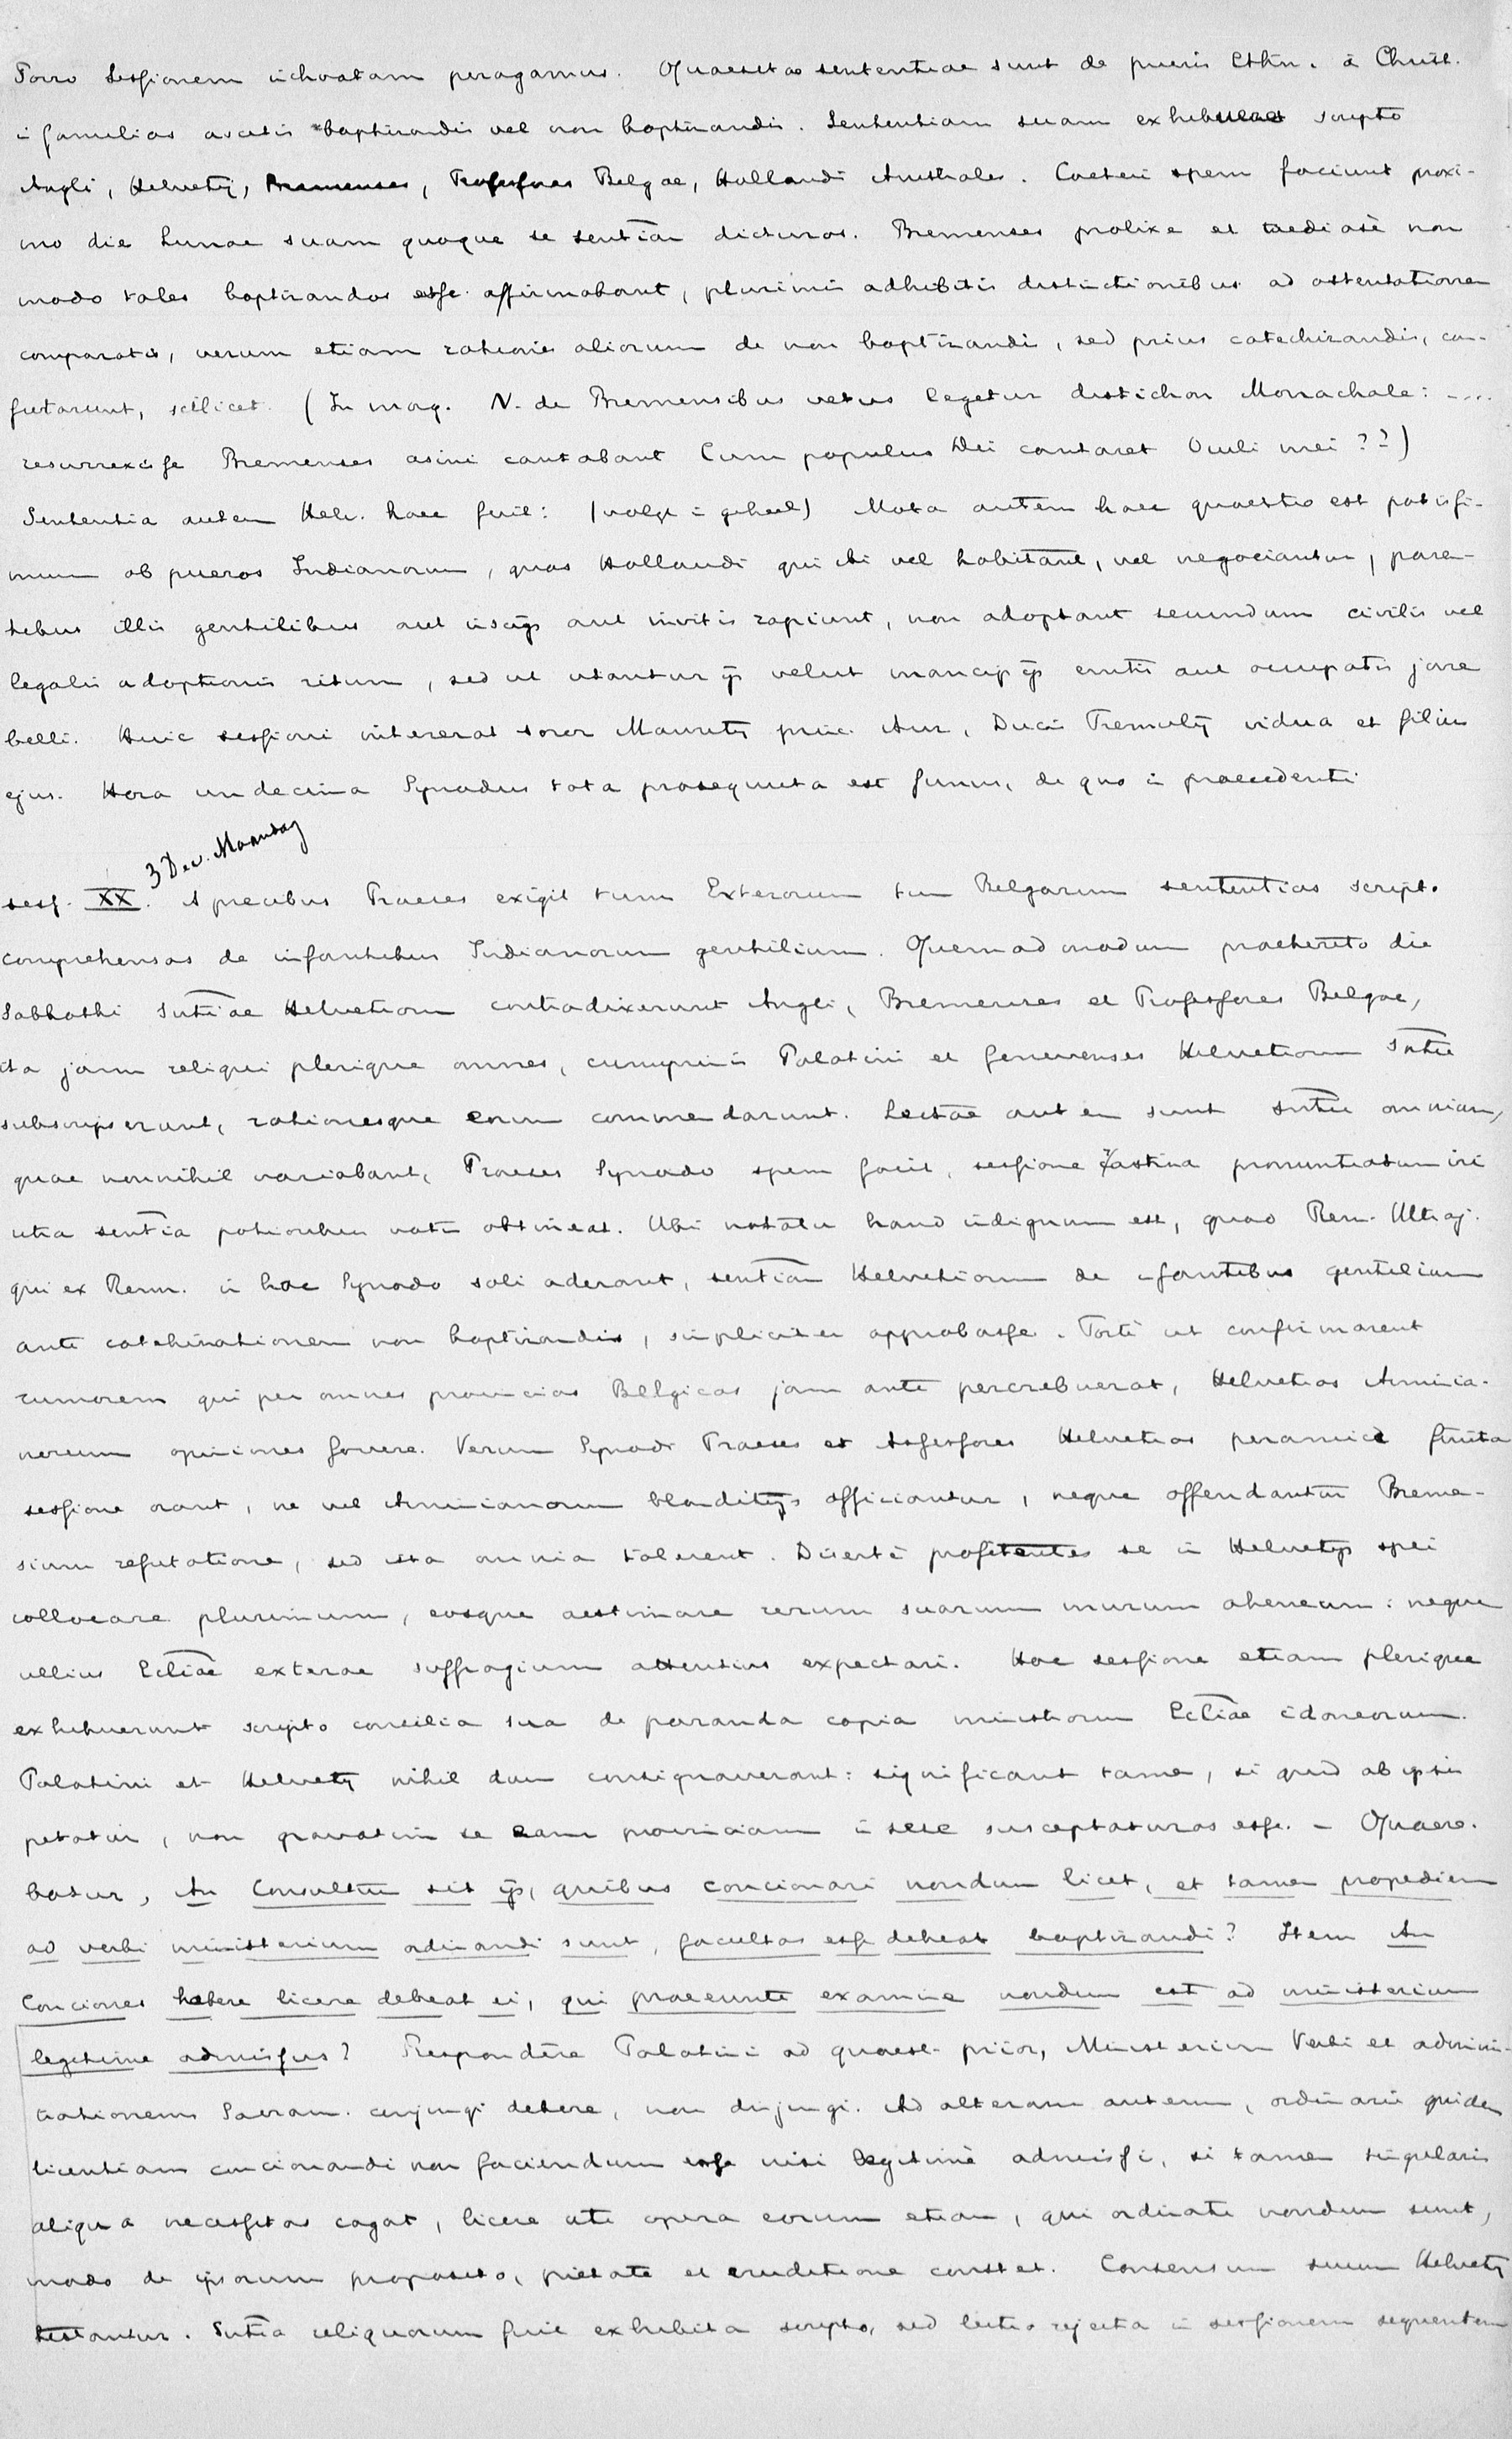 Porro Sessionem inchoatam peragamus. Quaesitae sententiae sunt de pueris Ethn. a Christ.
i familias ascitis baptizandis vel non baptizandis. Sententiam suam exhibuere scripto
Angli, Helvetij, Bremenses, Professores Belgae, Hollandi Australes. Caeteri spem faciunt proxi-
mo die Lunae suam quoque se sentīam dicturos. Bremenses prolixe et taediosè non
modo tales baptizandos esse affirmabant, plurimis adhibitis distinctionibus ad ostentationem
comparatis, verum etiam rationes aliorum de non baptizandis, sed prius catechizandis, con-
futarunt, scilicet. (In marg. N. de Bremensibus vetus legetur distichon Monachale: ....
resurrexisse Bremenses asini cantabant Cum populus Dei cantaret Oculi mei??)
Sententia autem Helv. haec fuit: (volgt i geheel) Mota autem haec quaestio est potissi-
mum ob pueros Indianorum, quos Hollandi qui ibi vel habitant, vel negociantur, paren-
tibus illis gentilibus aut inscijs aut invitis rapiunt, non adoptant secundum civilis vel
legalis adoptionis ritum, sed ut utantur ijs velut mancipijs emtis aut occupatis jure
belli. Huic sessioni intererat soror Mauritij princ. Aur. Ducis Tremulij vidua et filius
ejus. Hora undecima Synodus tota prosequuta est funus, de quo i praecedenti
3 Dec. Maandag
sess. XX. A precibus Praeses exigit tum Exterorum tum Belgarum sententias scripto
comprehensas de infantibus Indianorum gentilium. Quemadmodum praeterito die
Sabbathi Sntīae Helvetiorum contradixerunt Angli, Bremenses et Professores Belgae,
ita jam reliqui plerique omnes, cumprimis Palatini et Genevenses Helvetiorum Sntīe
subscripserunt, rationesque eorum commendarunt. Lectae autem sunt Sntīe omnium,
quae nonnihil variabant, Praeses Synodo spem facit, sessione crastina pronuntiatum iri
utra sentīa potioribus votis obtineat. Ubi notatu haud indignum est, quod Rem. Ultraj.
qui ex Rem. i hoc Synodo soli aderant, sentīam Helvetiorum de infantibus gentilium
ante catechizationem non baptizandis, simpliciter approbasse. Fortè ut confirmarent
rumorem qui per omnes provincias Belgicas jam ante percrebuerat, Helvetios Arminia-
norum opiniones fovere. Verum Synodi Praeses et Assessores Helvetios peramicè finita
sessione orant, ne vel Arminianorum blanditijs afficiantur, neque offendantur Breme-
sium refutatione, sed ista omnia tolerent. Disertè profitentes se in Helvetijs spei
collocare plurimum, eosque aestimare rerum suarum murum aheneum: neque
ullius Eclīae exterae suffragium attentius expectari. Hoc sessione etiam plerique
exhibuerunt scripto consilia sua de paranda copia ministrorum Eclīae idoneorum.
Palatini et Helvetij nihil dum consignaverant: significant tamen, si quid ab ipsis
petatur, non gravatim se eam provinciam i sese suscepturos esse. – Quaere-
batur, An Consultum sit ijs, quibus concionari nondum licet, et tamen propediem
ad verbi ministerium ordinandi sunt, facultas esse debeat baptizandi? Item An
Conciones habere licere debeat ei, qui praeeunte examine nondum est ad ministerium
legitime admissus? Respondēre Palatini ad quaest. prior, Ministerium Verbi et adminis-
trationem Sacram. conjungi debere, non disjungi. Ad alteram autem, ordinarie quidem
licentiam concionandi non faciendum esse nisi legitimè admissi, si tamen singularis
aliqua necessitas cogat, licere uti opera eorum etiam, qui ordinati nondum sunt,
modo de ipsorum proposito, pietate et eruditione constet. Consensum suum Helvetij
testantur. Sntīa reliquorum fuit exhibita scripto, sed lectio rejecta i sessionem sequentem